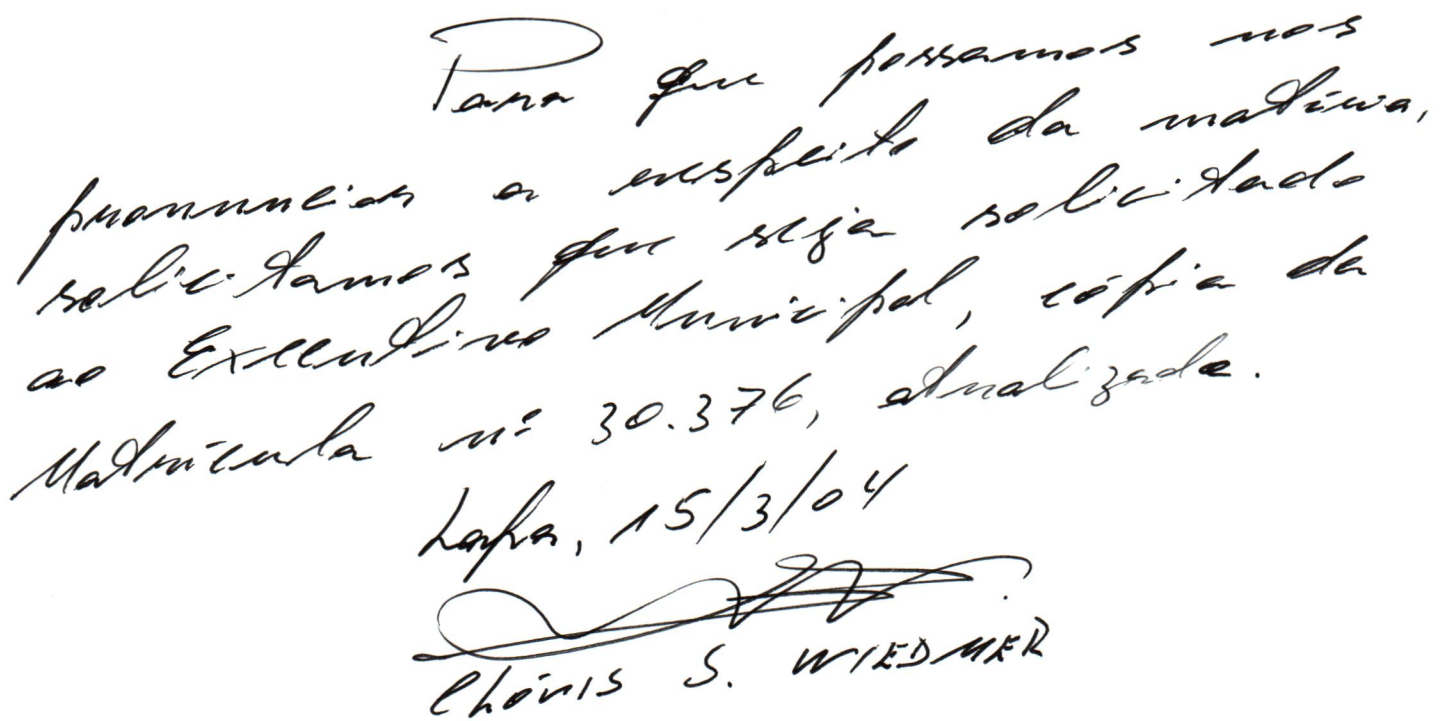 Para que possamos nos
pronunciar a respeito da matéria,
solicitamos que seja solicitado
ao Executivo Municipal, cópia da
Matrícula nº 30.376, atualizada.
Lapa, 15/3/04
S. WIEDMER